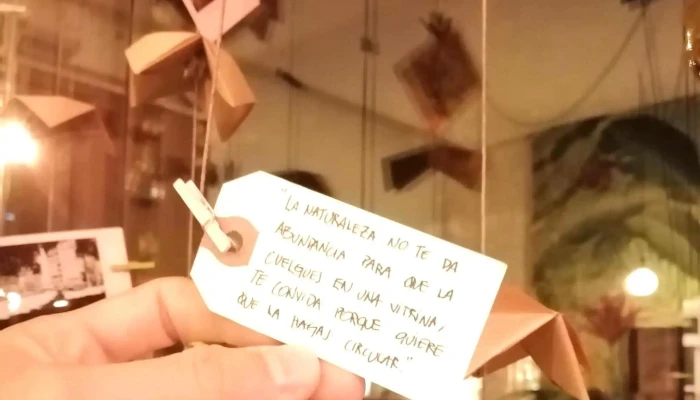 "LA NATURALEZA NO TE DA
ABUNDANCIA PARA QUE LA
CUELGUES EN UNA VITRINA,
TE CONVIDA PORQUE QUIERE
QUE LA HAGAS CIRCULAR."